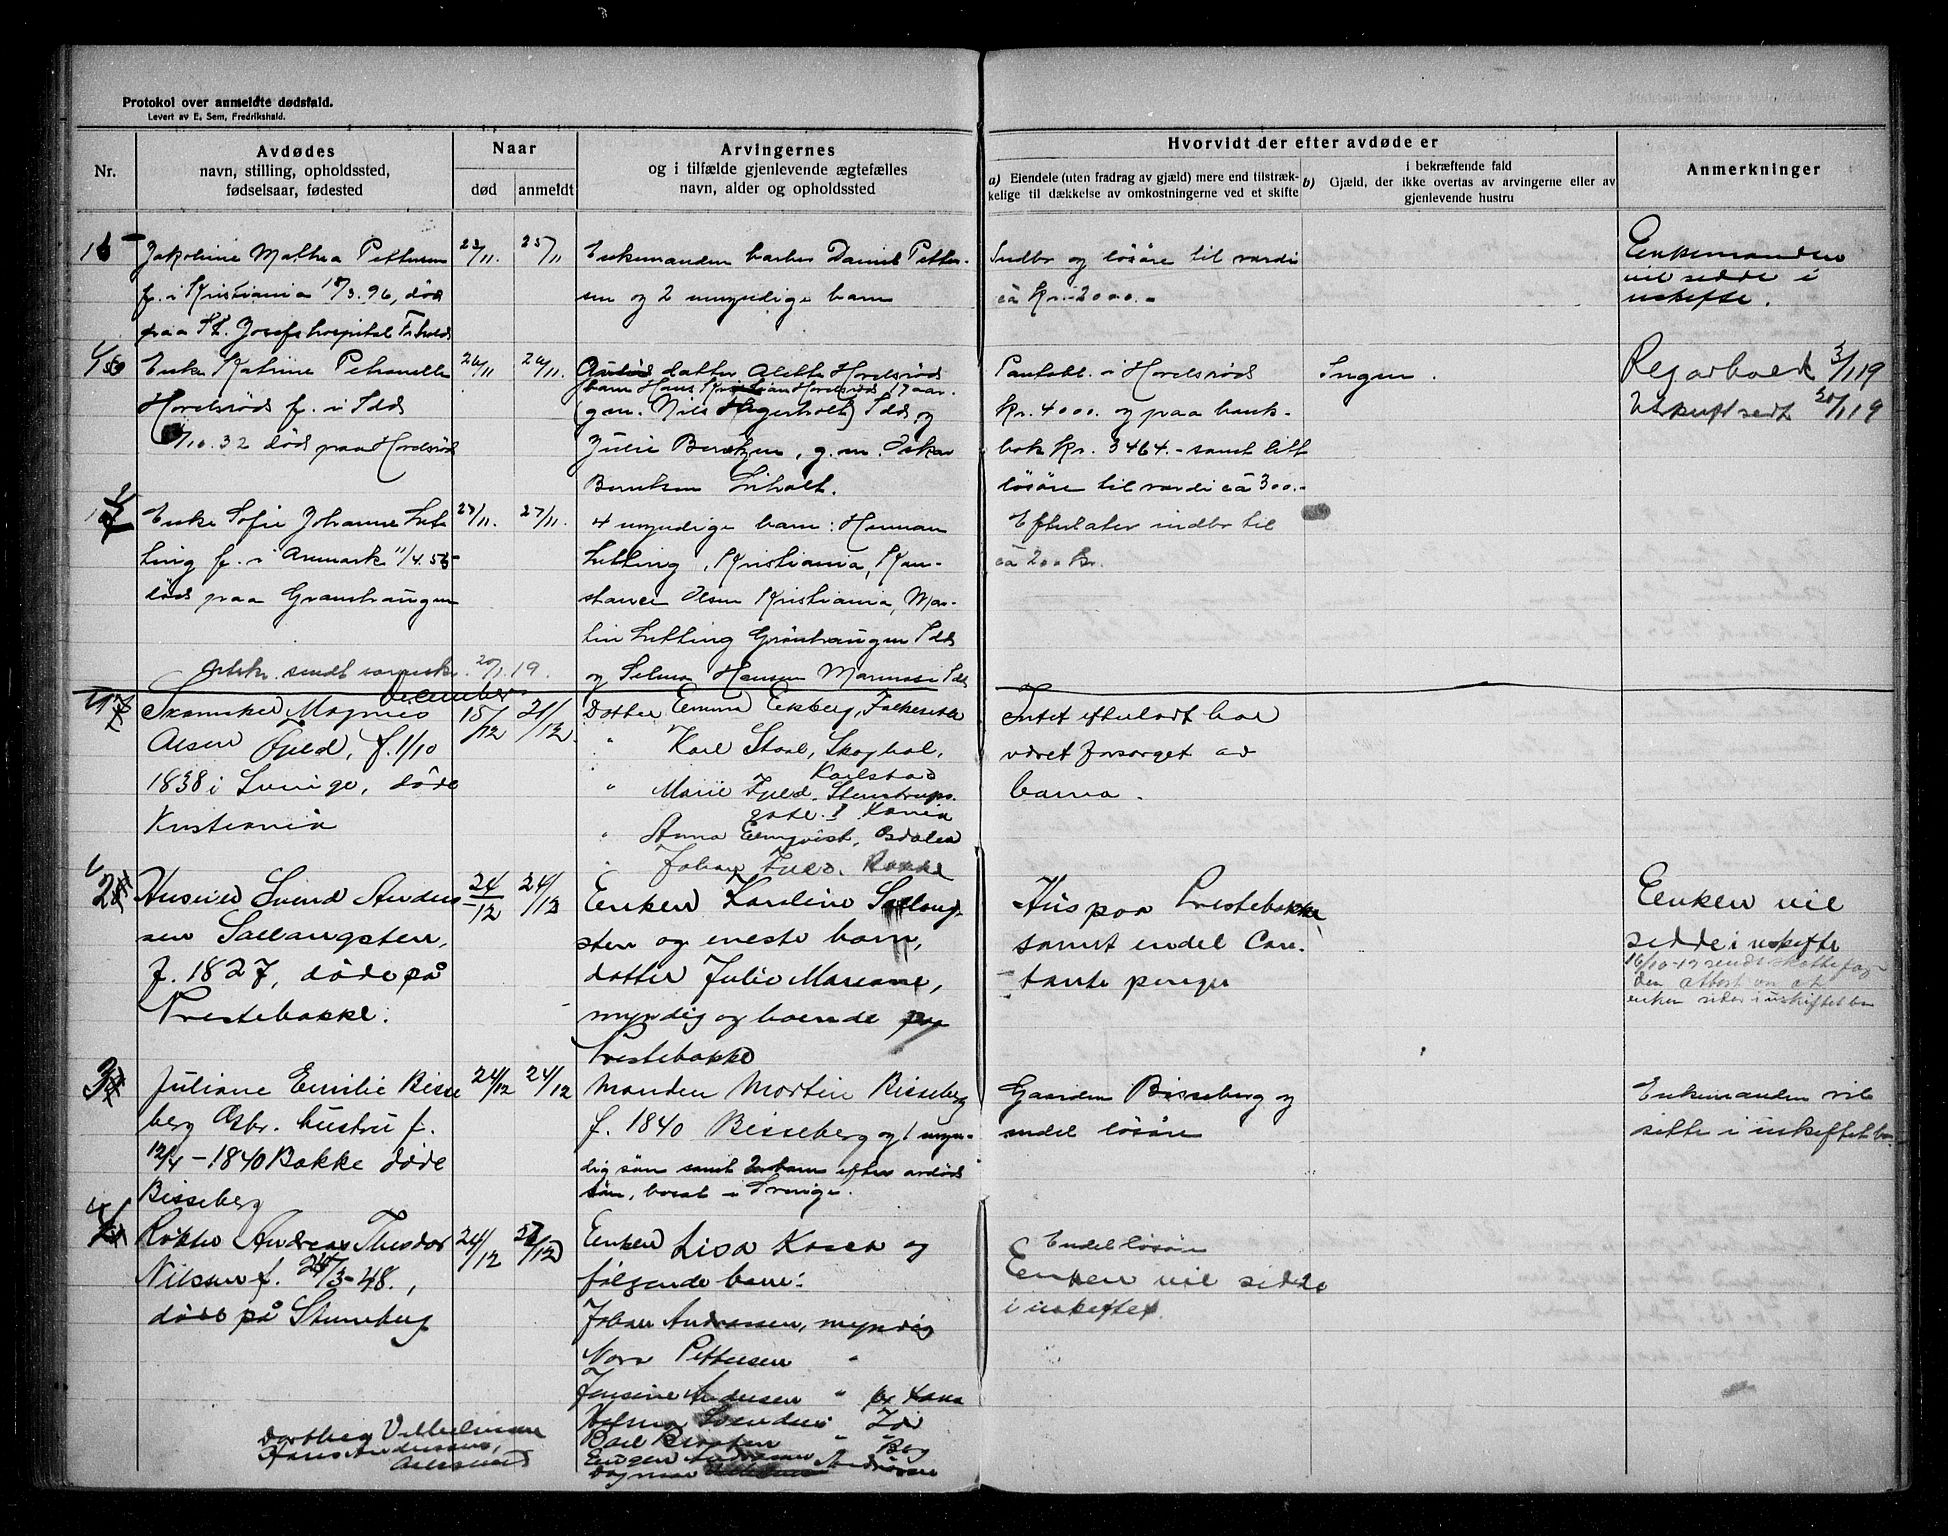 Protokol over anmeldte dødsfald.
Levert av E. Sem, Fredrikshald.
Nr.
Avdødes
navn, stilling, opholdssted,
fødselsaar, fødested
Naar
død
anmeldt
Arvingernes
og i tilfælde gjenlevende ægtefælles
navn, alder og opholdssted
Hvorvidt der efter avdøde er
a) Eiendele (uten fradrag av gjæld) mere end tilstræk-
kelige til dækkelse av omkostningerne ved et skifte
i bekræftende fald
b) Gjæld, der ikke overtas av arvingerne eller av
gjenlevende hustru
Anmerkninger
Mathea Pettersen
f. i Kristiania 18/3.96, død
paa St. Josefs hospital Fr.hald
23/11.
25/11
Enkemanden barber Daniel Petter-
sen og 2 umyndige barn
Indbo og løsøre til værdi
ca Kr. 2000.-
Enkemanden
vil sidde i
uskifte.
Enke Katrine Petronelle
Hovelsrød f. i Idd
/10.32 død paa Hovelsrød
26/11
26/11.
datter Alette Hovelsrød
barn Hans Kristian Hovelsrød 17 aar.
(g.m. Nils Hagerholt) Idd og
Julie Berntzen, g.m. Oskar
Berntsen
Pantobl. i Hovelsrød
Kr. 4000. og paa bank-
bok Kr. 3464.- samt litt
løsøre til værdi ca 300.-
Ingen.
3/1 19
20/1 19
Enke Sofie Johanne Set-
ting f. i Aremark 11/4.55
død paa Grønhaugen
27/11.
27/11.
4 myndige barn: Herman
Setting, Kristiania, Kon-
stance Olsen Kristiania, Mar-
tin Setting Grønhaugen Idd
og Selma Hansen Idd
Efterlater indbo til
ca 200 Kr.
sendt 20/1 19.
December
Magnus
Olsen Fjeld, f. 1/10
1838 i Sverige, døde
Kristiania
15/12
21/12.
Datter Emma Ekberg,
" Karl Staal, Skoghal,
Karlstad
" Marie Fjeld,
gate.
" Anna Elmqvist,
" Johan Fjeld. Bakke
Intet efterladt har
været forsørget av
barna.
2
Huseier Svend Ander-
sen Sallangsten,
f. 1827, døde på
Prestebakke.
24/12
24/12
Enken Karoline Sallang-
sten og eneste barn,
datter Julie Mariane,
myndig og boende paa
Prestebakke
Hus paa Prestebakke
samt endel Con-
tante penger
Enken vil
sidde i uskifte
16/10-19 sendt skattefog-
den attest om at
enken sider i uskiftet bo
3
Juliane Emilie Bisse
berg Gbr. hustru f.
12/4-1840 Bakke døde
Bisseberg
24/12
24/12
Manden Martin Bisseberg
f. 1840 Bisseberg og 1 myn-
dig søn samt barn efter avdød
søn, bosat i Sverige.
Gaarden Bisseberg og
endel løsøre
Enkemanden vil
sitte i uskiftet bo.
Andreas Theodor
Nilsen f. 24/3-48.,
døde på Stumberg
24/12
27/12
Enken Lisa Kasea og
følgende barn:
Johan Andreassen, myndig
Nora Pettersen "
Jensine Andersen "
Idd
Dagmar
Endel løsøre
Enken vil sidde
i uskiftet.
Hans Andersen,